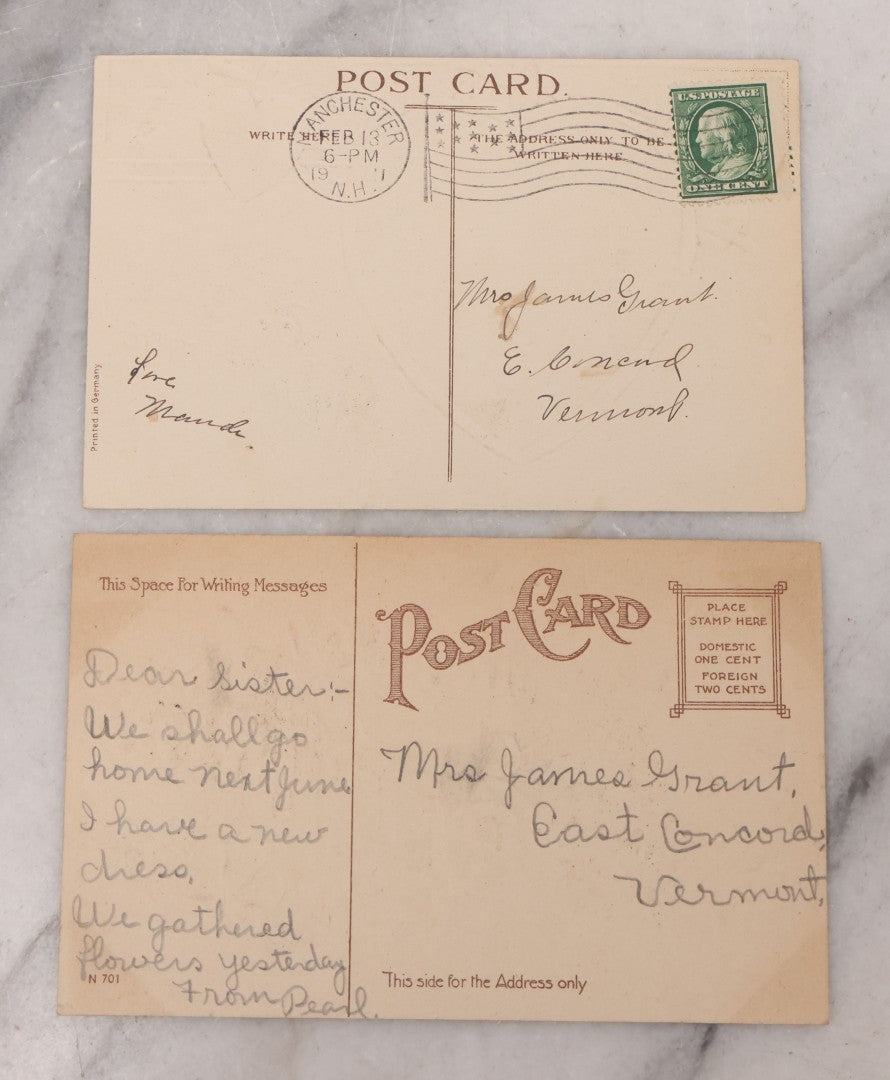 POST CARD.
MANCHESTER
FEB 13
6-PM
19 1
N.H.
WRITE HERE
THE ADDRESS ONLY TO BE
WRITTEN HERE.
U.S. POSTAGE
ONE CENT
Mrs James Grant.
E. Concord
Vermont.
Love
Maude.
Printed in Germany
This Space For Writing Messages
POST CARD
PLACE
STAMP HERE
DOMESTIC
ONE CENT
FOREIGN
TWO CENTS
Dear Sister:-
We shall go
home next June
I have a new
dress.
We gathered
flowers yesterday
From Pearl.
N 701
Mrs James Grant,
East Concord,
Vermont,
This side for the Address only